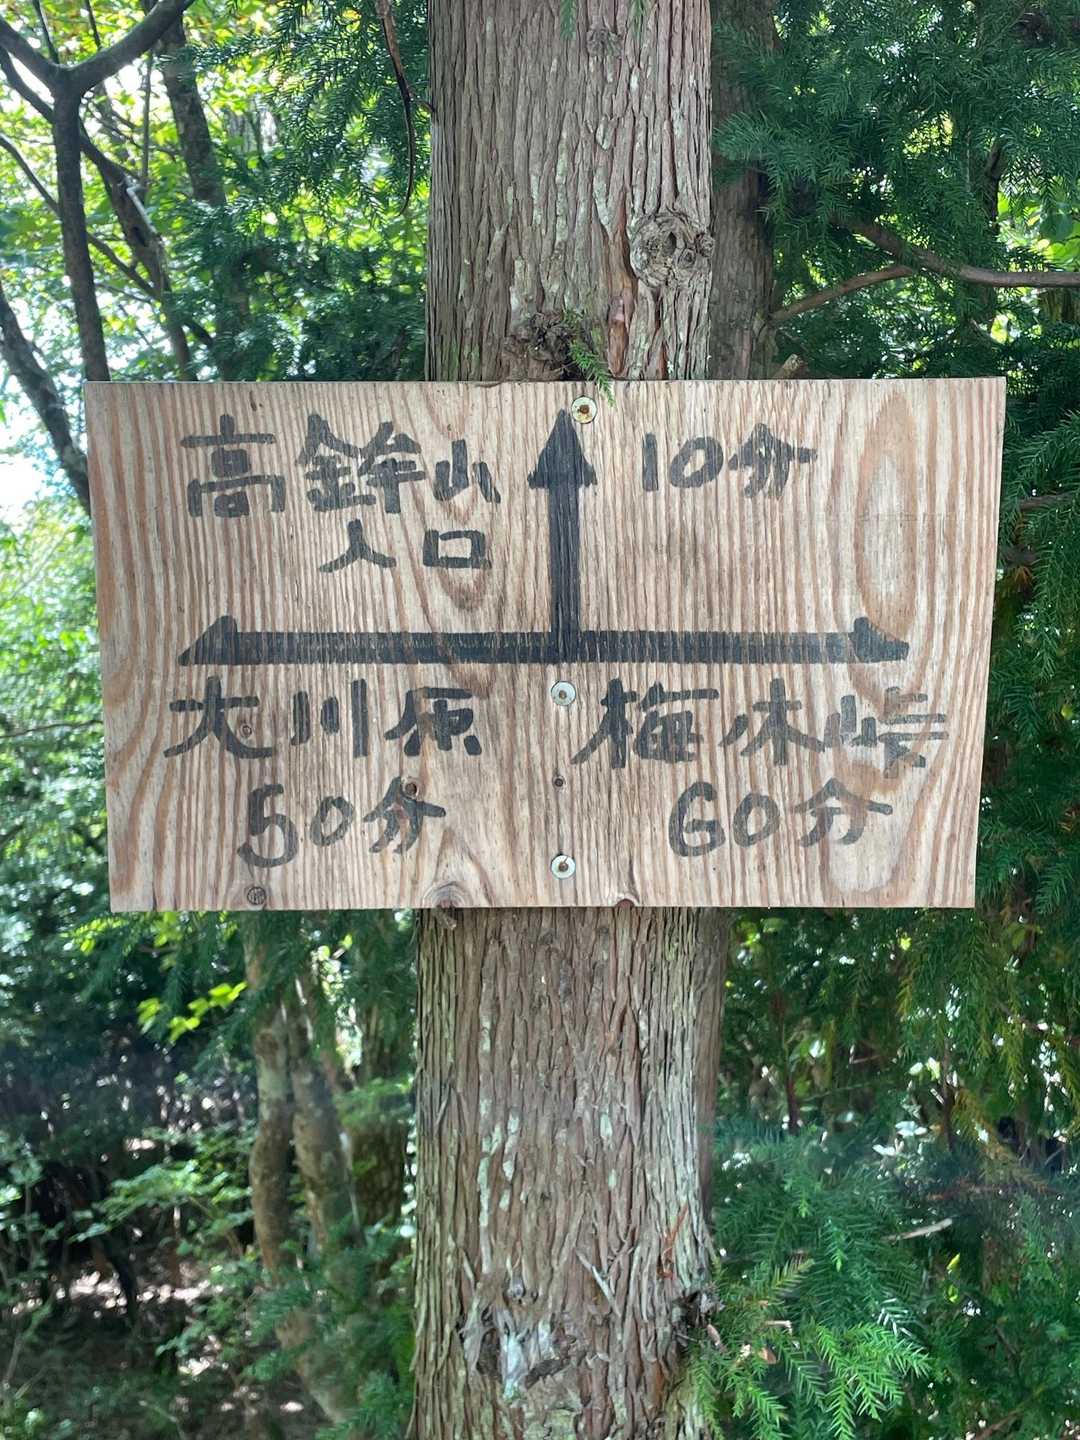 高鉾山 10分
入口
大川原 梅木峠
50分 60分